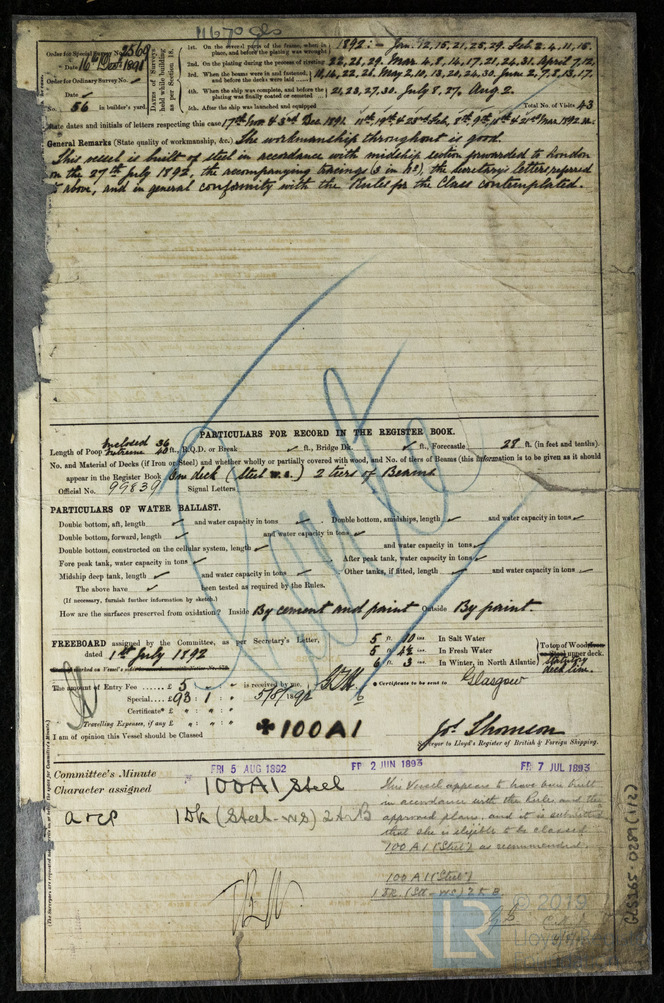 11670 Gls
Order for Special Survey No. 2569
Date 16th Dec 1891
Order for Ordinary Survey No.
Date
No. 56 in builder's yard.
Dates of Surveys held while building as per Section 18.
1st. On the several parts of the frame, when in place, and before the plating was wrought 1892:- Jan. 12, 15, 21, 25, 29. Feb. 2. 4. 11, 15.
2nd. On the plating during the process of riveting 22, 26, 29. Mar. 4, 8, 14, 17, 21, 24, 31. April 7, 12,
3rd. When the beams were in and fastened, and before the decks were laid 14, 16, 22, 26. May 2, 10, 13, 20, 24, 30. June 2, 7, 8, 13, 17.
4th. When the ship was complete, and before the plating was finally coated or cemented 21, 23, 27, 30. July 8. 27, Aug. 2.
5th. After the ship was launched and equipped
Total No. of Visits 43
State dates and initials of letters respecting this case 17th Nov. & 3rd Dec. 1891 18th, 19th & 23rd Feb., 8th, 9th, 18th & 21st Mar. 1892
General Remarks (State quality of workmanship, &c.) The workmanship throughout is good.
This vessel is built of steel in accordance with midship section forwarded to London
on the 27th July 1892, the accompanying tracings (3 in No), the secretary's letters referred
to above, and in general conformity with the Rules for the Class contemplated.
PARTICULARS FOR RECORD IN THE REGISTER BOOK.
Length of Poop Inclosed 36 Extreme 40 ft., R.Q.D. or Break ft., Bridge Dk. ft., Forecastle 28 ft. (in feet and tenths).
No. and Material of Decks (if Iron or Steel) and whether wholly or partially covered with wood, and No. of tiers of Beams (this information is to be given as it should
appear in the Register Book One deck (Steel w.s.) 2 tiers of Beams
Official No. 99839 Signal Letters
PARTICULARS OF WATER BALLAST.
Double bottom, aft, length and water capacity in tons Double bottom, amidships, length and water capacity in tons
Double bottom, forward, length and water capacity in tons
Double bottom, constructed on the cellular system, length and water capacity in tons
Fore peak tank, water capacity in tons After peak tank, water capacity in tons
Midship deep tank, length and water capacity in tons Other tanks, if fitted, length and water capacity in tons
The above have been tested as required by the Rules.
(If necessary, furnish further information by sketch.)
How are the surfaces preserved from oxidation? Inside By cement and paint Outside By paint
FREEBOARD assigned by the Committee, as per Secretary's Letter, 5 ft. 10 ins. In Salt Water
dated 1st July 1892 5 ft. 4½ ins. In Fresh Water
6 ft. 3 ins. In Winter, in North Atlantic
To top of Wood upper deck. Statutory deck line.
The amount of Entry Fee £ 5 is received by me,
Special £ 93 : 1 5/8/1892
Certificate
Certificate to be sent to Glasgow
Travelling Expenses, if any £
I am of opinion this Vessel should be Classed ✠100A1
Jos. Thomson
Surveyor to Lloyd's Register of British & Foreign Shipping.
Committee's Minute FRI 5 AUG 1892 FRI 2 JUN 1893 FRI 7 JUL 1893
Character assigned 100A1 Steel
1 Dk (Steel-ws) 2 trs B
This Vessel appears to have been built
in accordance with the Rules and the
approved plans, and it is submitted
that she is eligible to be classed
100A1 (Steel) as recommended.
100A1 (Steel)
1 Dk. (Stl-ws) 2 B.
GLS59S-0289 (1/2)
LR
© 2019